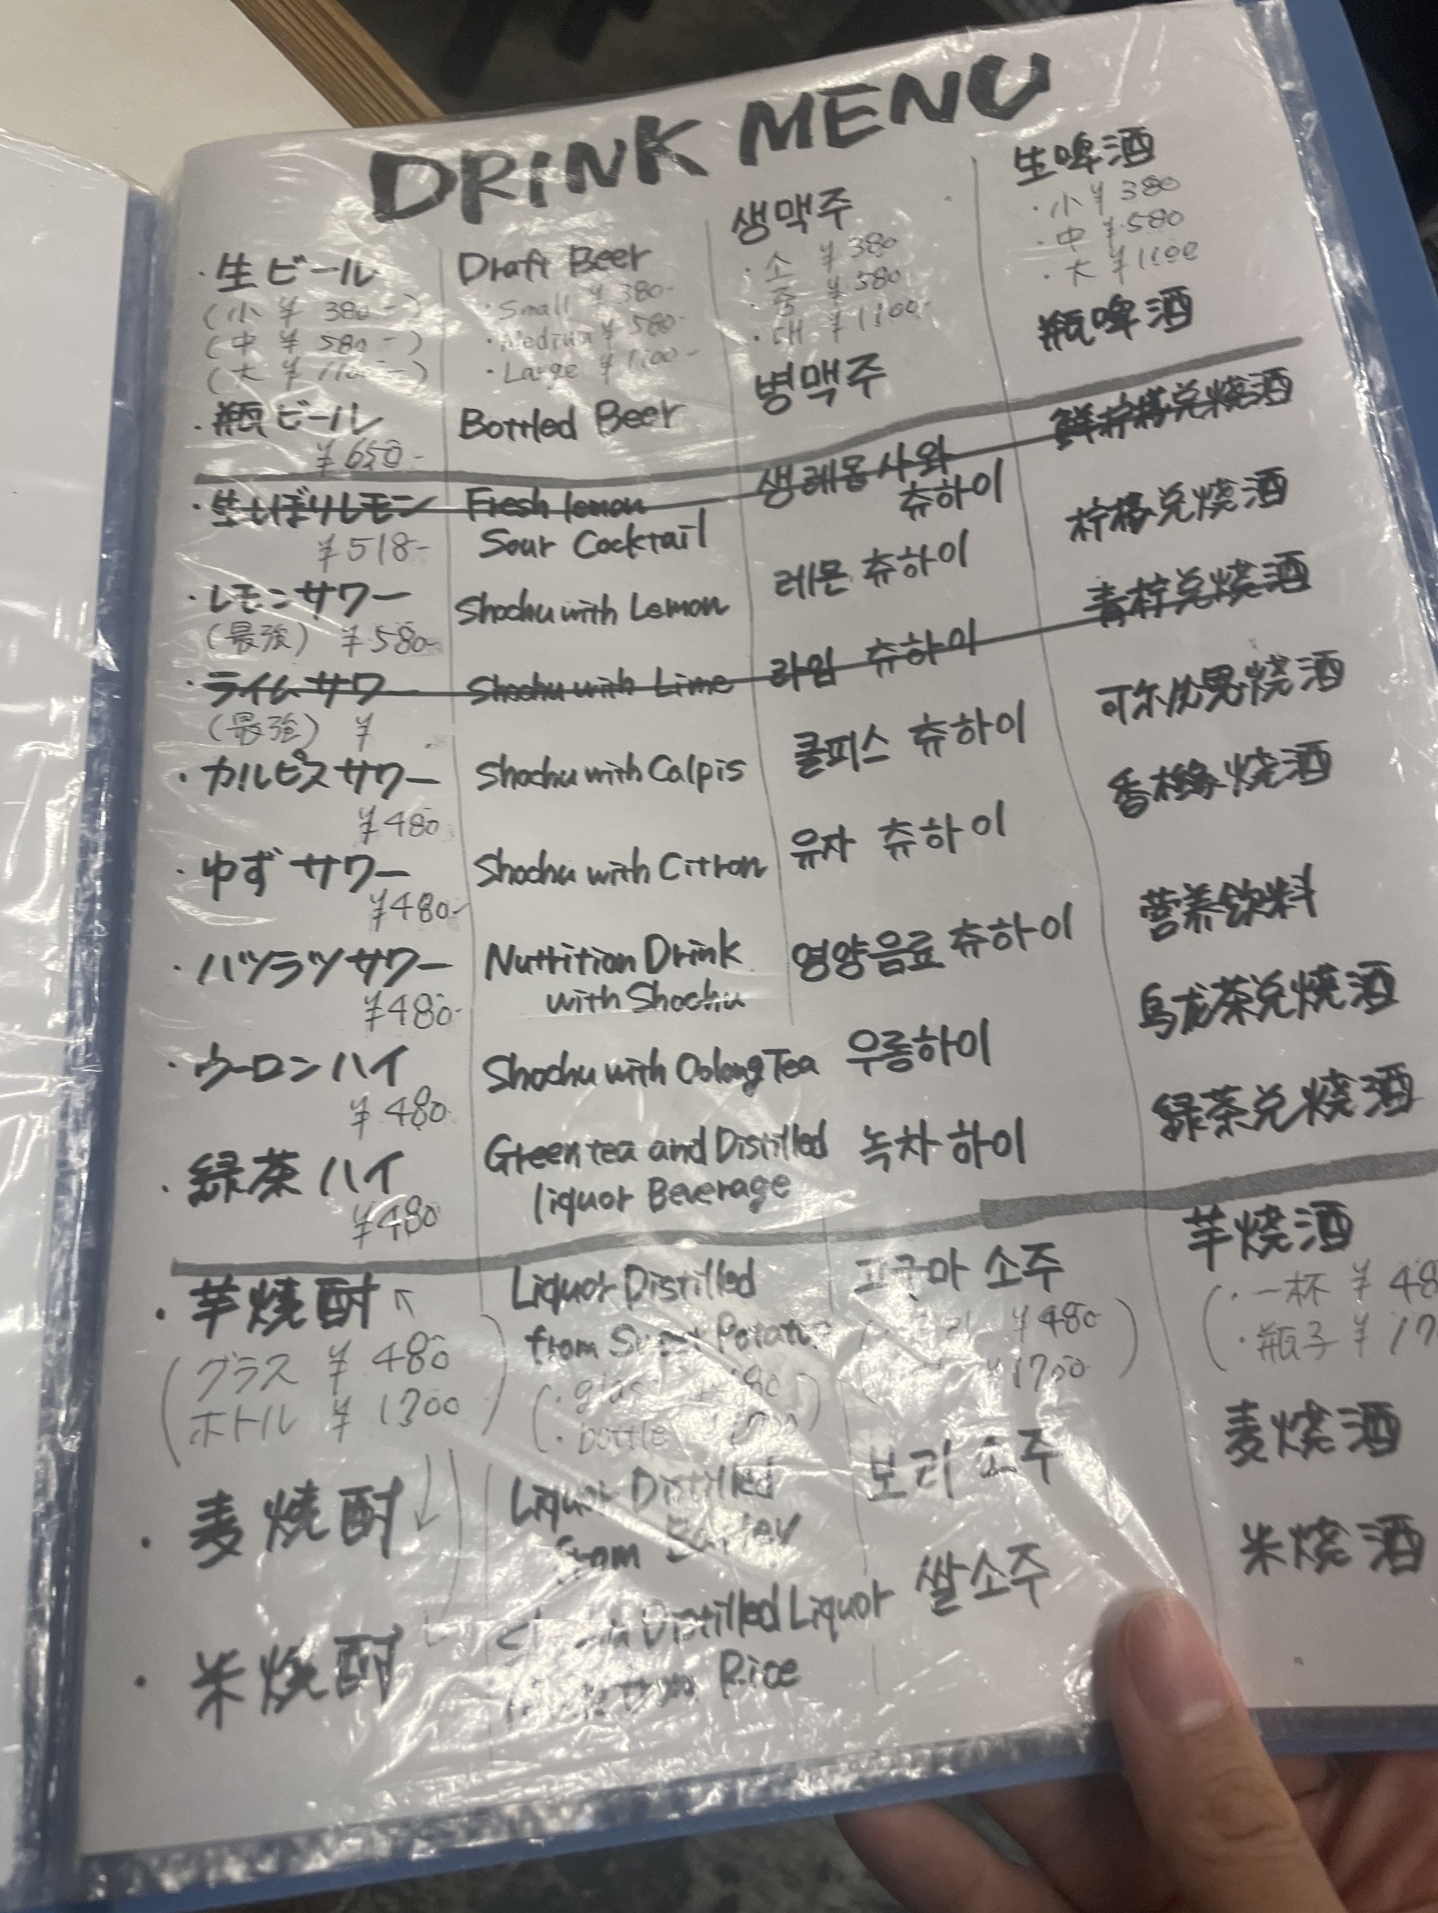 DRINK MENU
・生ビール
(小 ¥ 380-)
(中 ¥ 580-)
(大 ¥ 1100-)
・瓶ビール
¥650-
・生しぼりレモン
¥518-
・レモンサワー
(最強) ¥580-
・ライムサワー
(最強) ¥
・カルピスサワー
¥480
・ゆずサワー
¥480-
・ハツラツサワー
¥480-
・ウーロンハイ
¥480-
・緑茶ハイ
¥480
・芋焼酎
グラス ¥ 480
ボトル ¥ 1700
・麦焼酎
・米焼酎
Draft Beer
・Small ¥ 380-
・Medium ¥ 580-
・Large ¥ 1100-
Bottled Beer
Fresh lemon
Sour Cocktail
Shochu with Lemon
Shochu with Lime
Shochu with Calpis
Shochu with Citron
Nuttition Drink
with Shochu
Shochu with Oolong Tea
Green tea and Distilled
liquor Beverage
Liquor Distilled
from Sweet Potato
(・glass
(・bottle
Liquor Distilled
from Barley
Distilled Liquor
Rice
생맥주
・소 ¥ 380
・중 ¥ 580
・대 ¥ 1100-
병맥주
생레몬사와
츄하이
레몬 츄하이
라임 츄하이
클피스 츄하이
유자 츄하이
영양음료 츄하이
우롱하이
녹차하이
고구마 소주
¥480
¥1700
보리 소주
쌀소주
生啤酒
・小 ¥ 380
・中 ¥ 580
・大 ¥ 1100
瓶啤酒
鲜柠檬兑烧酒
柠檬兑烧酒
青柠兑烧酒
可尔必思烧酒
香橼烧酒
营养饮料
乌龙茶兑烧酒
緑茶兑烧酒
芋烧酒
(・一杯 ¥ 48
・瓶子 ¥ 17
麦烧酒
米烧酒